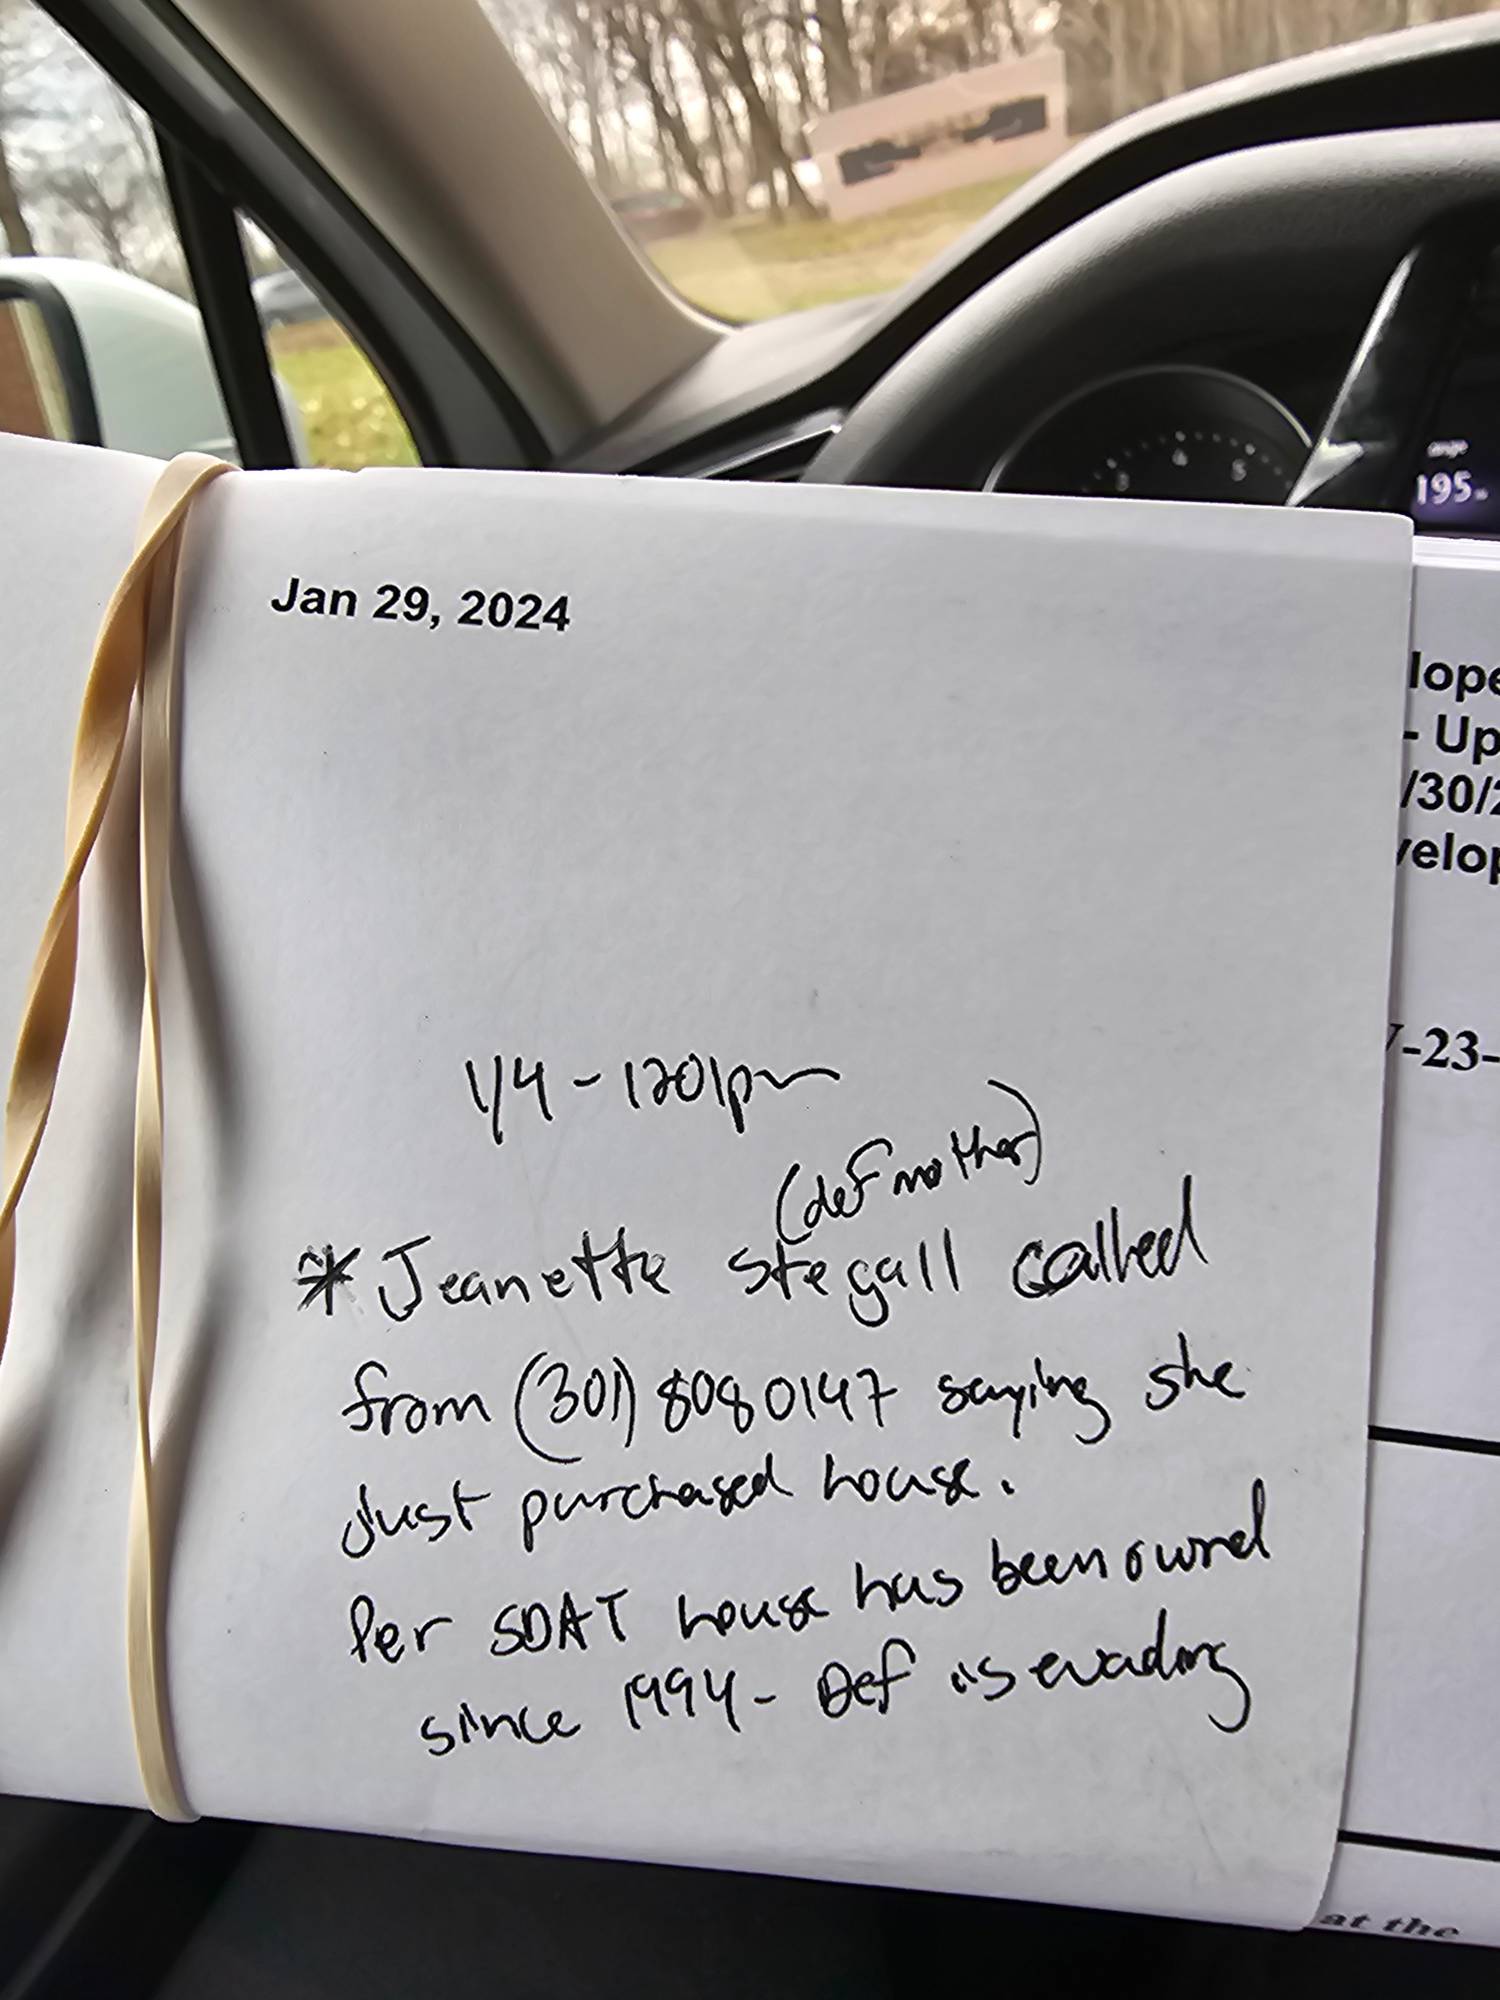 range
195
3 4 5
Jan 29, 2024
lope
- Up
/30/2
velop
-23-
1/4 - 1201pm
(def mother)
* Jeanette Stegall called
from (301) 8080147 saying she
Just purchased house.
Per SDAT house has been owned
since 1994 - Def is evading
at the